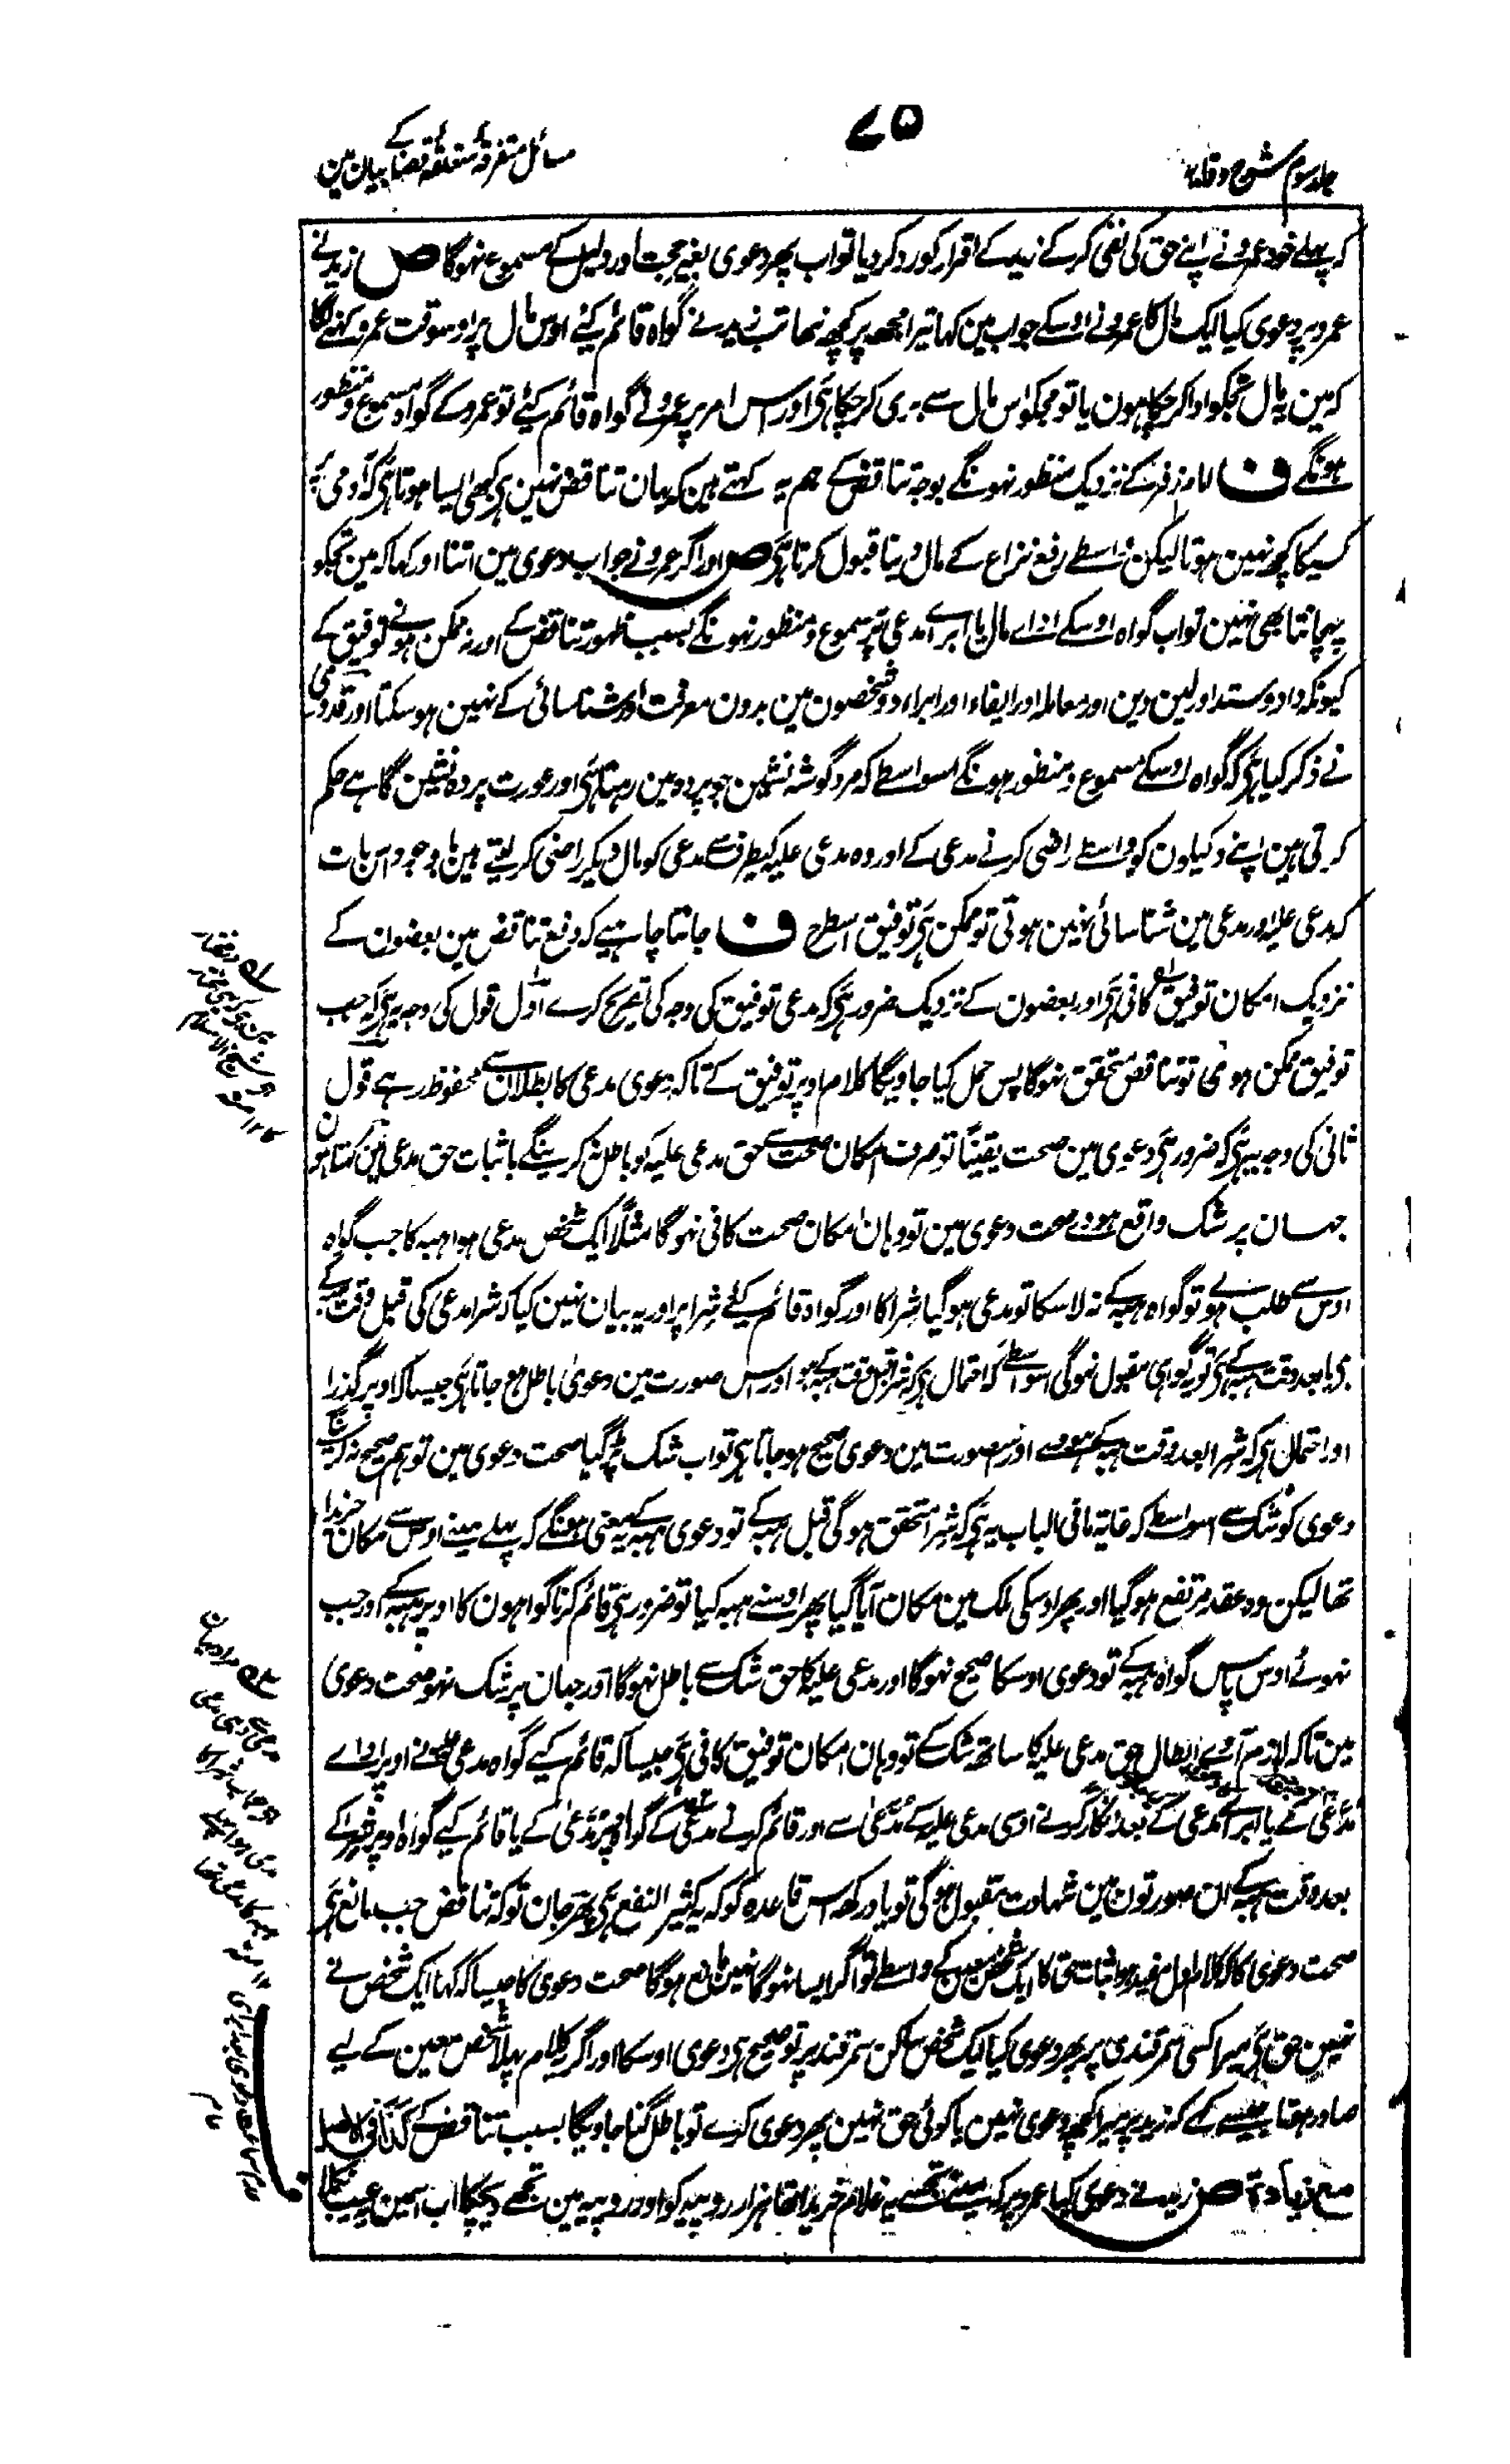 ۷۵
جلد سوم شرح وقایہ
مسائل متفرقہ متعلقہ قضا کے بیان مین
کہ پہلے خود عمرو نے اپنے حق کی نفی کرکے زید کے اقرار کو رد کر دیا تو اب پھر دعوی بغیر حجت اور دلیل کے مسموع نہوگا ص زید نے
عمرو پر دعوی کیا ایک مال کا عمرو نے اوسکے جواب مین کہا تیرا مجھ پر کچھ نتھا تب زید نے گواہ قائم کیے اوس مال پر اوسوقت عمرو کہنے لگا
کہ مین یہ مال تجکو ادا کر چکا ہون یا تو مجکو اس مال سے بری کر چکا ہی اور اس امر پر عمرو نے گواہ قائم کیے تو عمرو کے گواہ مسموع و منظور
ہونگے ف امام زفر کے نزدیک منظور نہونگے بوجہ تناقض کے ہم یہ کہتے ہین کہ یہان تناقض نہین ہی کبھی ایسا ہوتا ہی کہ آدمی پر
کسیکا کچھ نہین ہوتا لیکن واسطے رفع نزاع کے مال دینا قبول کرتا ہی ص اور اگر عمرو نے جواب دعوی مین اتنا اور کہا کہ مین تجکو
پہچانتا بھی نہین تو اب گواہ اوسکے اداے مال یا ابراے مدعی پر مسموع و منظور نہونگے بسبب ظہور تناقض کے اور نہ ممکن ہونے توفیق کے
کیونکہ داد و ستد اور لین دین اور معاملہ اور ایفاء اور ابراء دو شخصون مین بدون معرفت اور شناسائی کے نہین ہو سکتا اور قدوری
نے ذکر کیا ہی کہ گواہ اوسکے مسموع و منظور ہونگے اسواسطے کہ مرد گوشہ نشین جو پردہ مین رہتا ہی اور عورت پردہ نشین گاہے حکم
کرتی ہین اپنے وکیلون کو واسطے راضی کرنے مدعی کے اور وہ مدعی علیہ کیطرف سے مدعی کو مال دیکر راضی کر لیتے ہین باوجود اس بات
کہ مدعی علیہ اور مدعی مین شناسائی نہین ہوتی تو ممکن ہی توفیق اسطرح ف جاننا چاہیے کہ دفع تناقض مین بعضون کے
نزدیک امکان توفیق کافی ہی اور بعضون کے نزدیک ضرور ہی کہ مدعی توفیق کی وجہ کی تصریح کرے اول قول کی وجہ یہ ہی کہ جب
توفیق ممکن ہوئی تو تناقض متحقق نہوگا پس حمل کیا جاویگا کلام اوپر توفیق کے تاکہ دعوی مدعی کا بطلان سے محفوظ رہے قول
ثانی کی وجہ یہ ہی کہ ضرور ہی دعوی مین صحت یقیناً تو صرف امکان صحت سے حق مدعی علیہ کو باطل نہ کرینگے باثبات حق مدعی مین کہتا ہون
جہان پر شک واقع ہووے صحت دعوی مین تو وہان امکان صحت کافی نہوگا مثلاً ایک شخص مدعی ہوا ہبہ کا جب گواہ
اوس سے طلب ہوے تو گواہ ہبہ کے نہ لا سکا تو مدعی ہو گیا شرا کا اور گواہ قائم کیے شرا پر اور یہ بیان نہین کیا کہ شرا مدعی کی قبل وقت ہبہ کے
ہی یا بعد وقت ہبہ کے ہی تو یہ گواہی مقبول نہوگی اسواسطے کہ احتمال ہی کہ شرا قبل وقت ہبہ کے ہو اور اس صورت مین دعوی باطل ہو جاتا ہی جیسا کہ اوپر گذرا
اور احتمال ہی کہ شرا بعد وقت ہبہ کے ہووے اور اس صورت مین دعوی صحیح ہو جاتا ہی تو اب شک پڑ گیا صحت دعوی مین تو ہم صحیح نہ کرینگے
دعوی کو شک سے اسواسطے کہ غایۃ ما فی الباب یہ ہی کہ شرا متحقق ہوگی قبل ہبہ کے تو دعوی ہبہ کے یہ معنی ہونگے کہ پہلے مینے اوس سے مکان خریدا
تھا لیکن وہ عقد مرتفع ہو گیا اور پھر اوسکی ملک مین مکان آ گیا پھر اوسنے ہبہ کیا تو ضرور ہی قائم کرنا گواہون کا اوپر ہبہ کے اور جب
نہوئے اوس پاس گواہ ہبہ کے تو دعوی اوسکا صحیح نہوگا اور مدعی علیہ کا حق شک سے باطل نہوگا اور جہان پر شک نہو صحت دعوی
مین تاکہ لازم آوے ابطال حق مدعی علیہ کا ساتھ شک کے تو وہان امکان توفیق کافی ہی جیسا کہ قائم کیے گواہ مدعی علیہ نے اوپر اداے
مدعی کے یا ابراے مدعی کے بعد انکار کرنے اوسی مدعی علیہ کے مدعی سے اور قائم کرنے مدعی کے گواہ اوپر مدعی کے یا قائم کیے گواہ اوپر شرا کے
بعد وقت ہبہ کے ان صورتون مین شہادت مقبول ہوگی تو یاد رکھ اس قاعدہ کو کہ یہ کثیر النفع ہی پھر جان تو کہ تناقض جب مانع ہی
صحت دعوی کا کہ کلام اول مفید ہو اثبات حق کا ایک شخص معین کے واسطے تو اگر ایسا نہوگا نہین مانع ہوگا صحت دعوی کا جیسا کہ کہا ایک شخص نے
نہین حق ہی میرا کسی سمرقندی پر پھر دعوی کیا ایک شخص ساکن سمرقند پر تو صحیح ہی دعوی اوسکا اور اگر یہ کلام پہلا شخص معین کے لیے
صادر ہوتا جیسے کہے کہ زید پر میرا کچھ دعوی نہین یا کوئی حق نہین پھر دعوی کرے تو باطل گنا جاویگا بسبب تناقض کے کذا فی الاصل
مع زیادۃ ص زید نے دعوی کیا عمرو پر کہ مینے تجھسے یہ غلام خریدا تھا ہزار روپیہ کو اور روپیہ مین تجھے دیچکا اب اسمین عیب نکلا